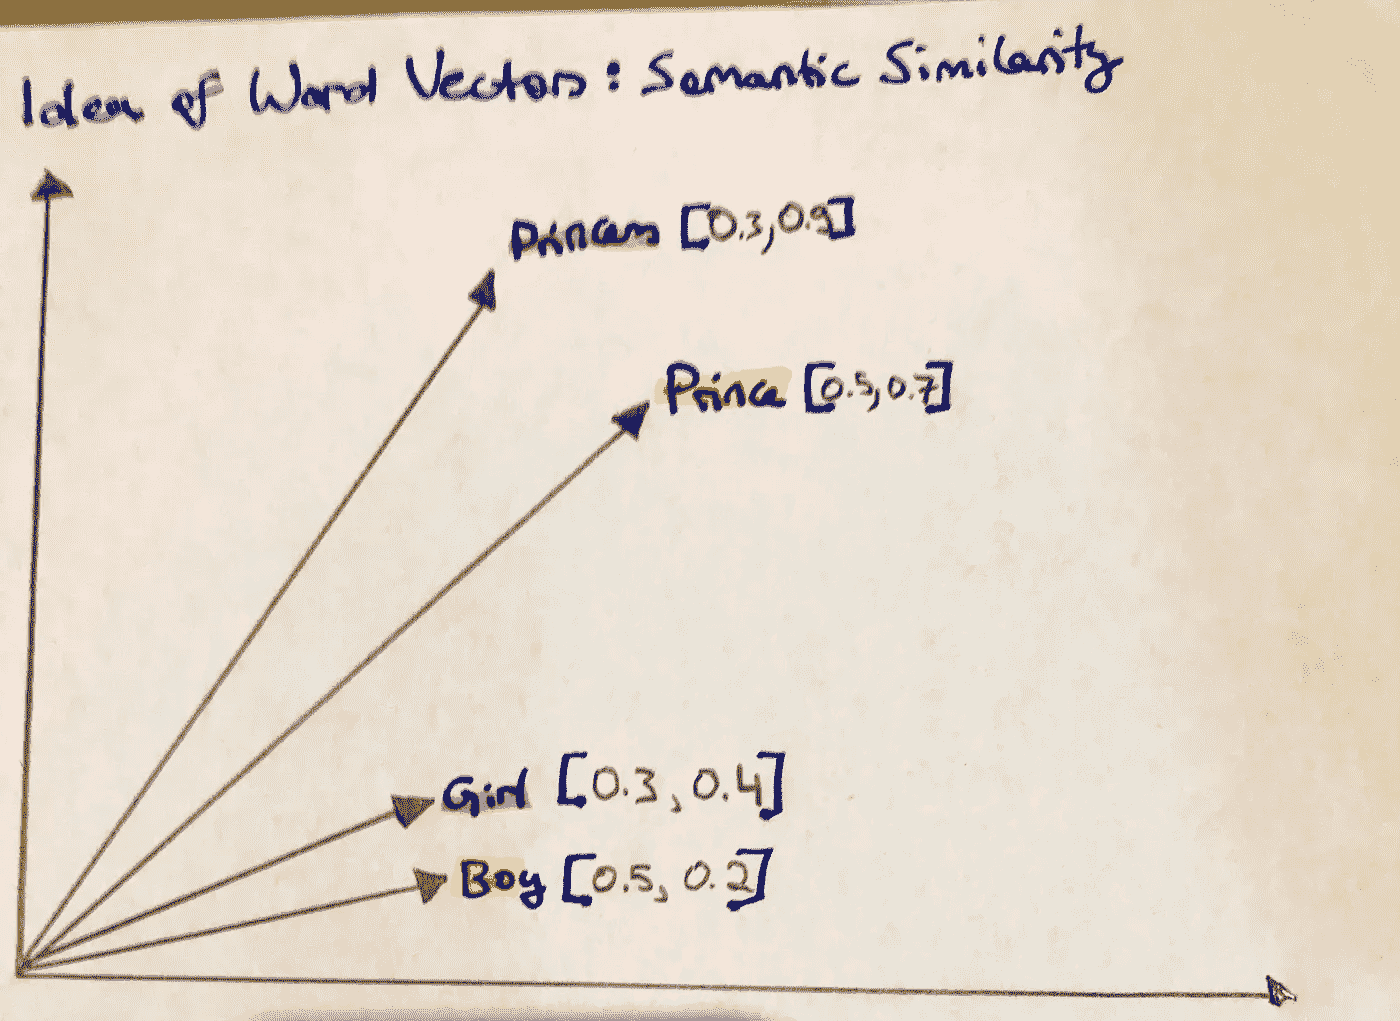 Idea of Word Vectors : Semantic Similarity
Princess [0.3,0.9]
Prince [0.5,0.7]
Girl [0.3, 0.4]
Boy [0.5, 0.2]